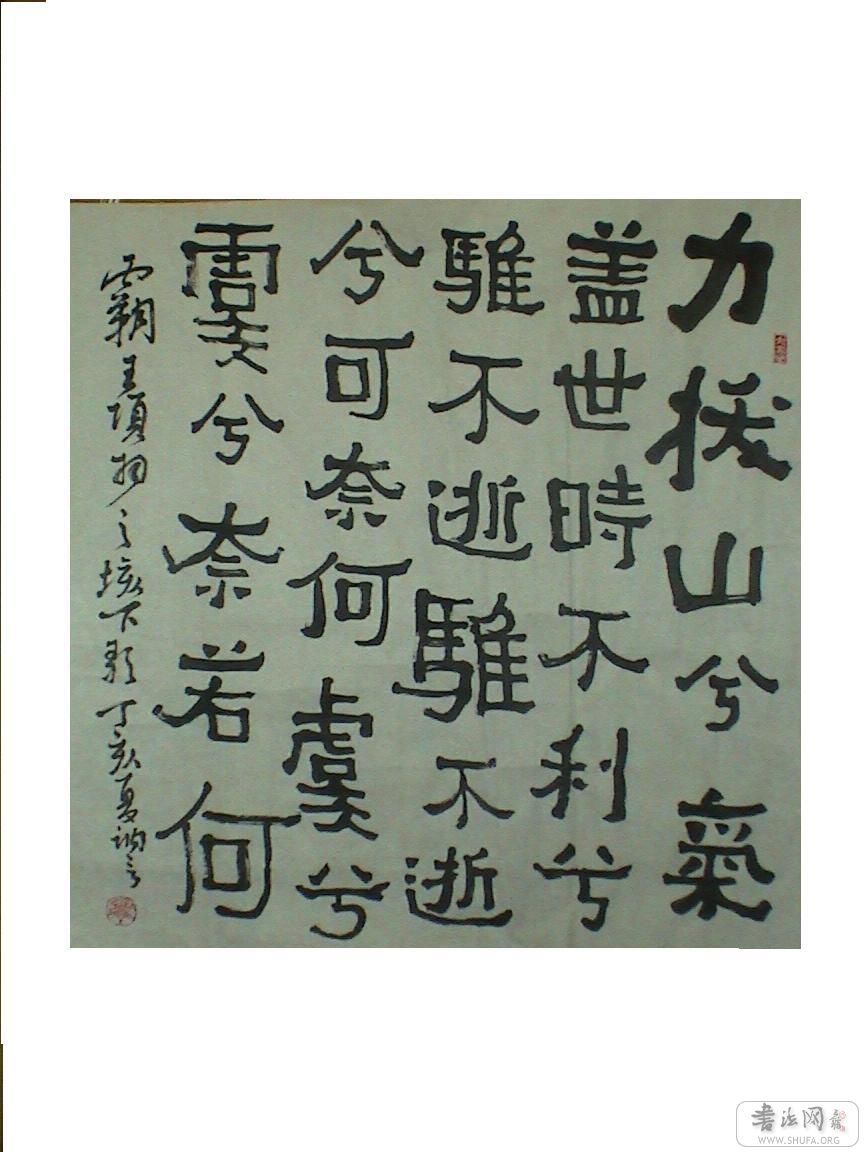 力拔山兮氣
盖世時不利兮
騅不逝騅不逝
兮可奈何虞兮
虞兮奈若何
霸王項羽之垓下歌丁亥夏訥言
書法网
WWW.SHUFA.ORG